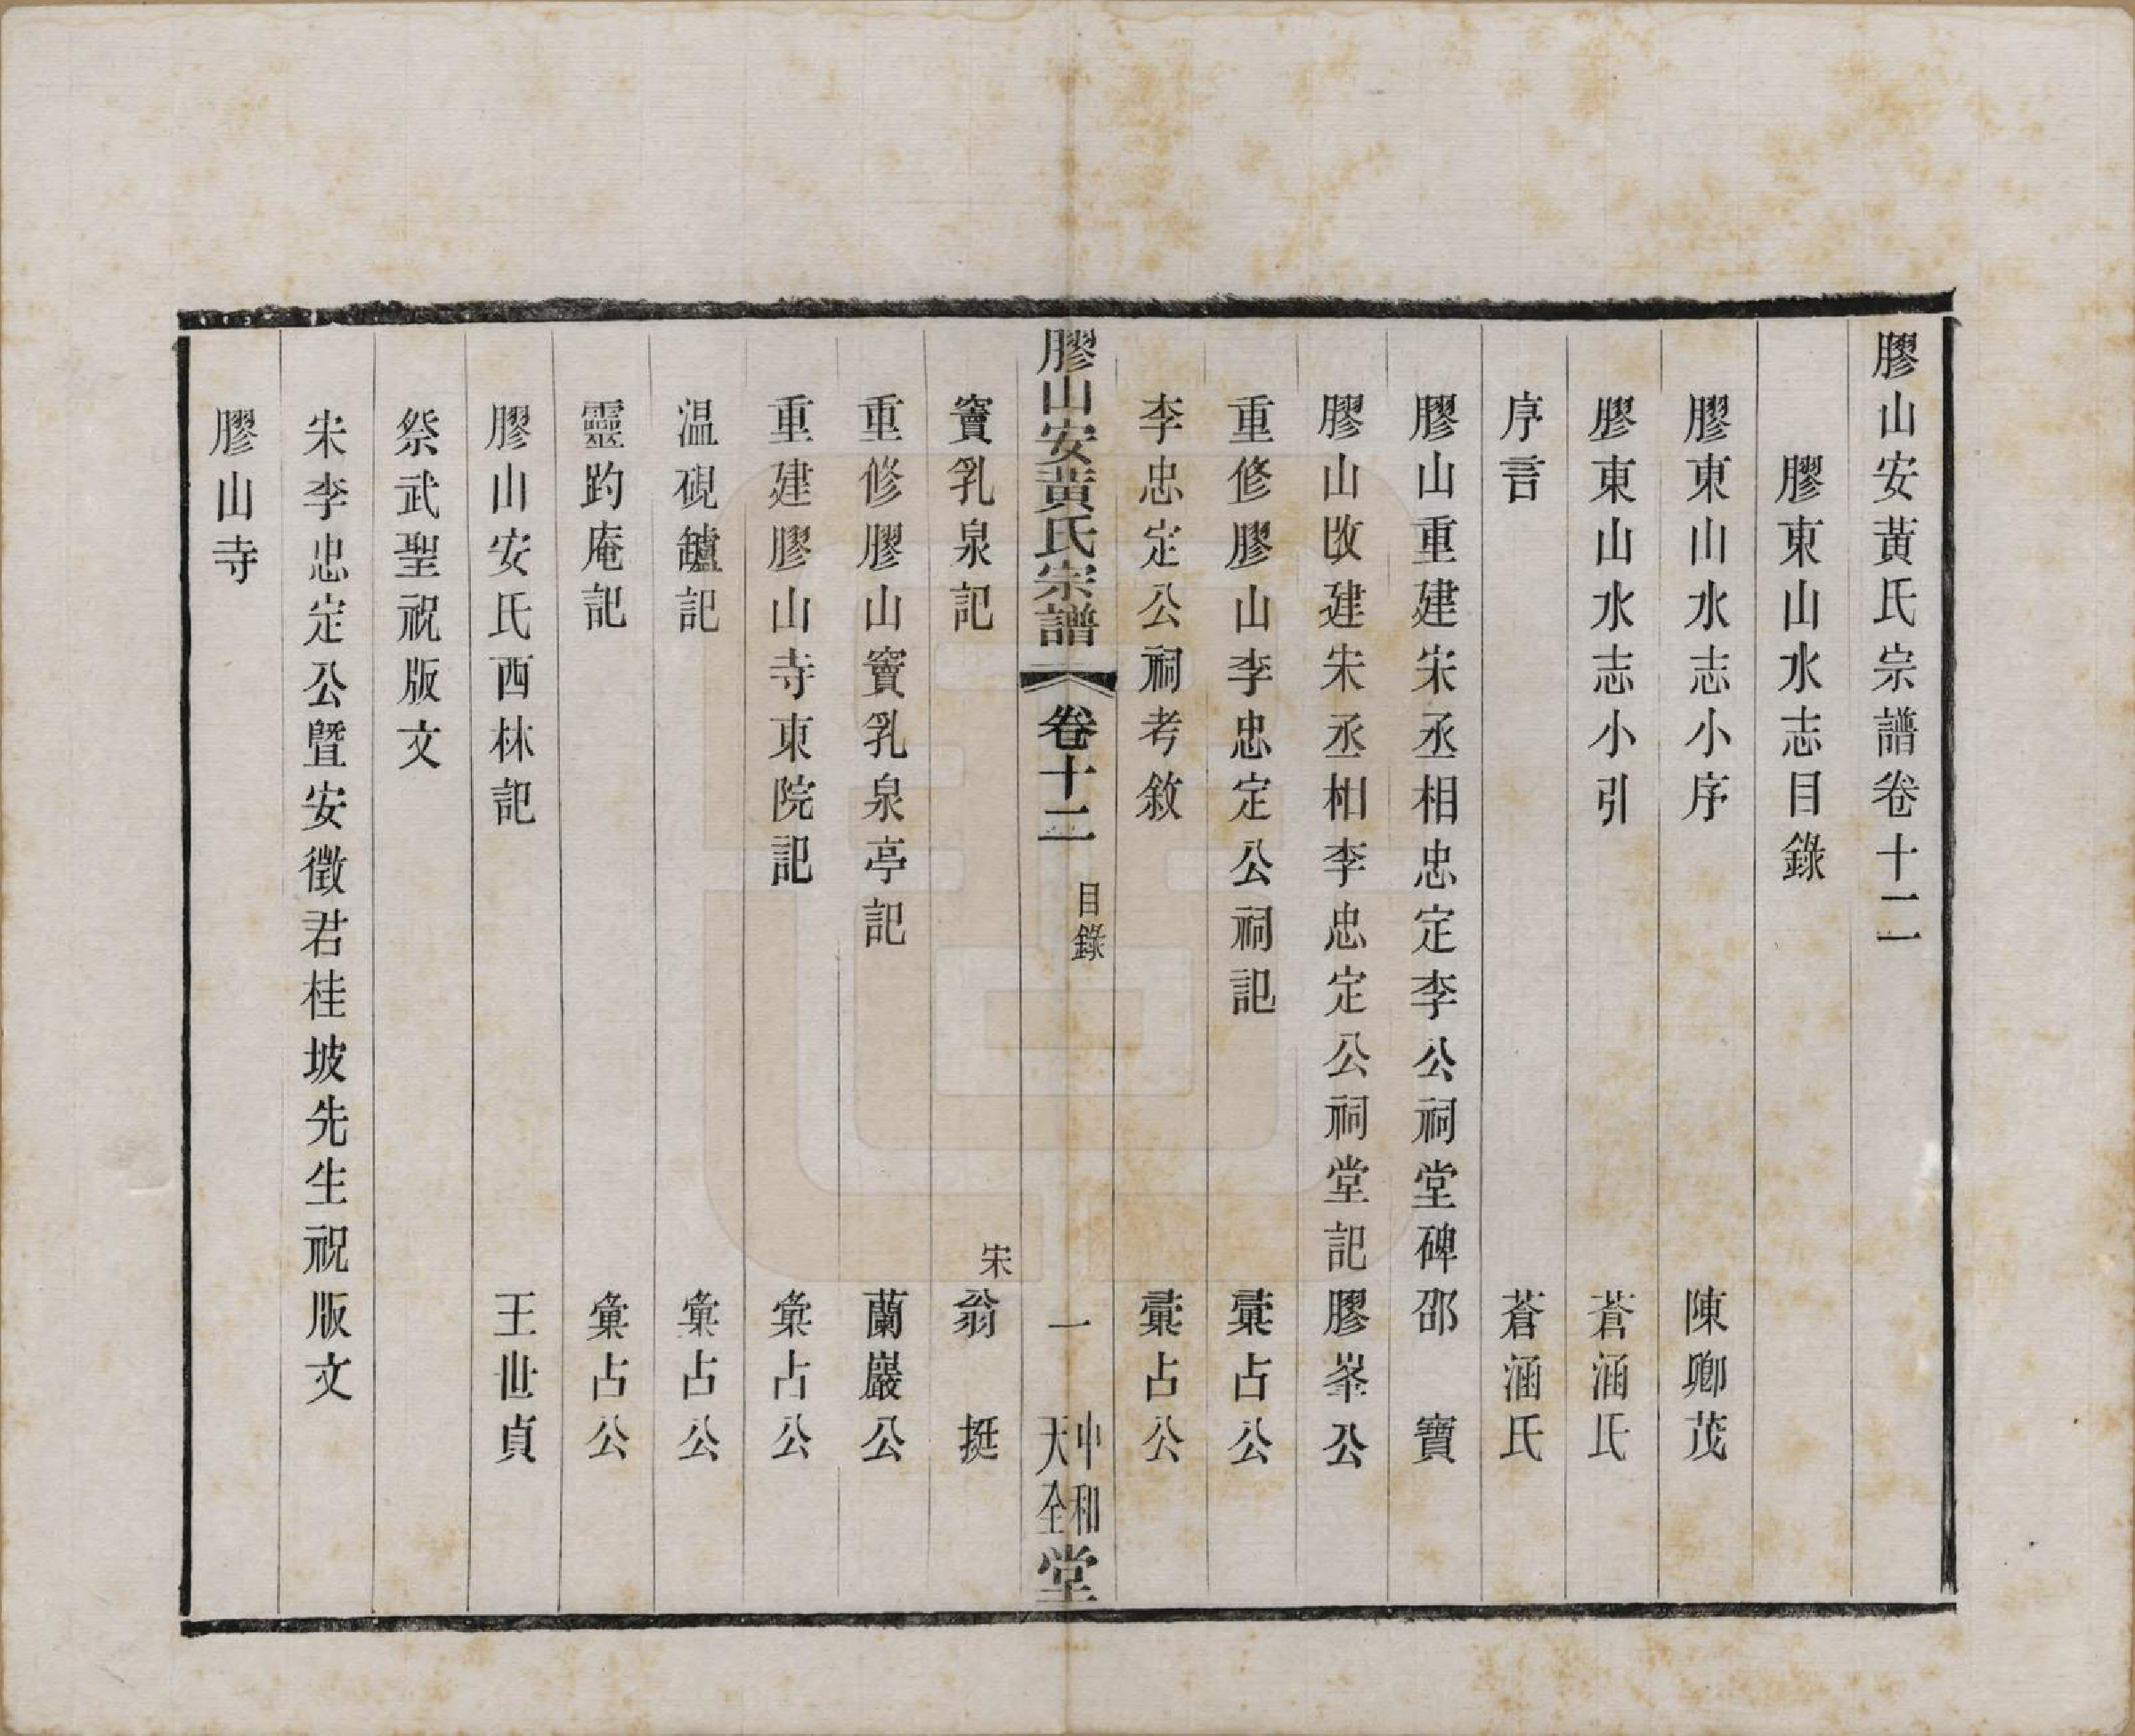 膠山安黃氏宗譜卷十二
膠東山水志目錄
膠東山水志小序 陳卿茂
膠東山水志小引 蒼涵氏
序言 蒼涵氏
膠山重建宋丞相忠定李公祠堂碑 邵寶
膠山改建宋丞相李忠定公祠堂記 膠峯公
重修膠山李忠定公祠記 彚占公
李忠定公祠考敘 彚占公
膠山安黃氏宗譜 卷十二 目錄 一 中和大全堂
竇乳泉記 宋翁挺
重修膠山竇乳泉亭記 蘭巖公
重建膠山寺東院記 彙占公
温硯鑪記 彙占公
靈趵庵記 彙占公
膠山安氏西林記 王世貞
祭武聖祝版文
宋李忠定公曁安徵君桂坡先生祝版文
膠山寺